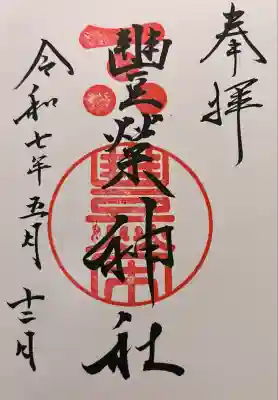 奉拝
豊榮神社
令和七年五月十二月